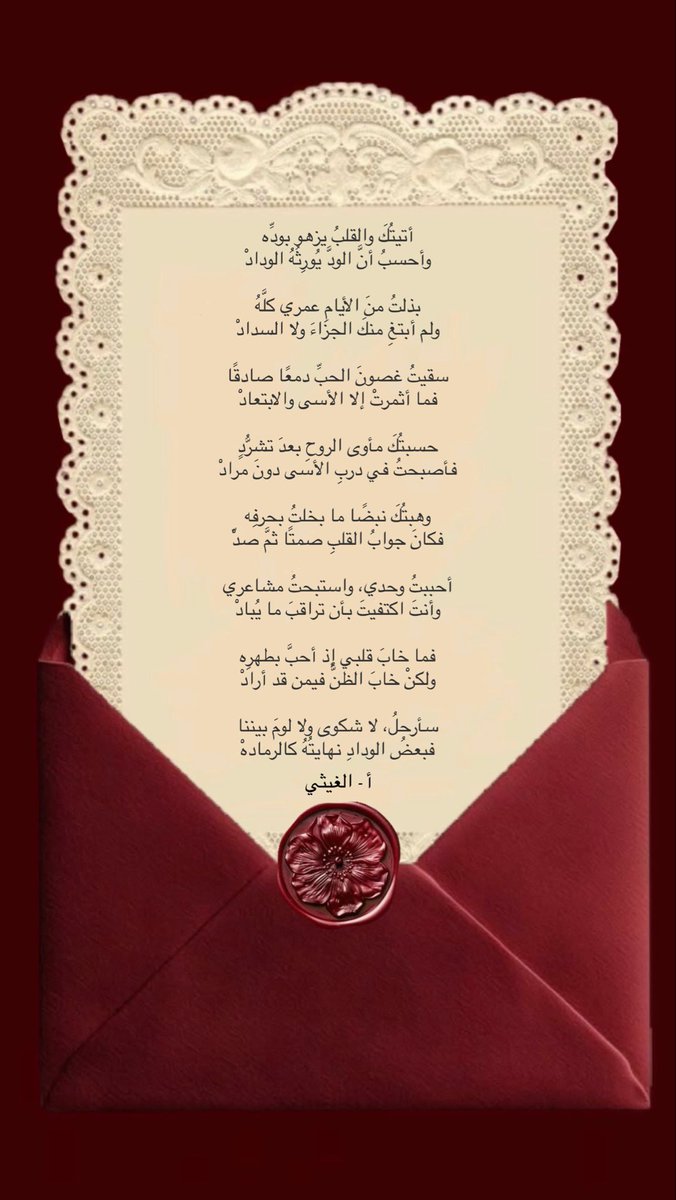 أتيتُكَ والقلبُ يزهو بودِّه
وأحسبُ أنَّ الودَّ يُورِثُهُ الودادْ
بذلتُ منَ الأيامِ عمري كلَّهُ
ولم أبتغِ منكَ الجزاءَ ولا السدادْ
سقيتُ غصونَ الحبِّ دمعًا صادقًا
فما أثمرتْ إلا الأسى والابتعادْ
حسبتُكَ مأوى الروحِ بعدَ تشرُّدٍ
فأصبحتُ في دربِ الأسى دونَ مرادْ
وهبتُكَ نبضًا ما بخلتُ بحرفِه
فكانَ جوابُ القلبِ صمتًا ثمَّ صدّْ
أحببتُ وحدي، واستبحتُ مشاعري
وأنتَ اكتفيتَ بأن تراقبَ ما يُبادْ
فما خابَ قلبي إذ أحبَّ بطهرِه
ولكنْ خابَ الظنُّ فيمن قد أرادْ
سأرحلُ، لا شكوى ولا لومَ بيننا
فبعضُ الودادِ نهايتُهُ كالرمادهْ
أ - الغيثي